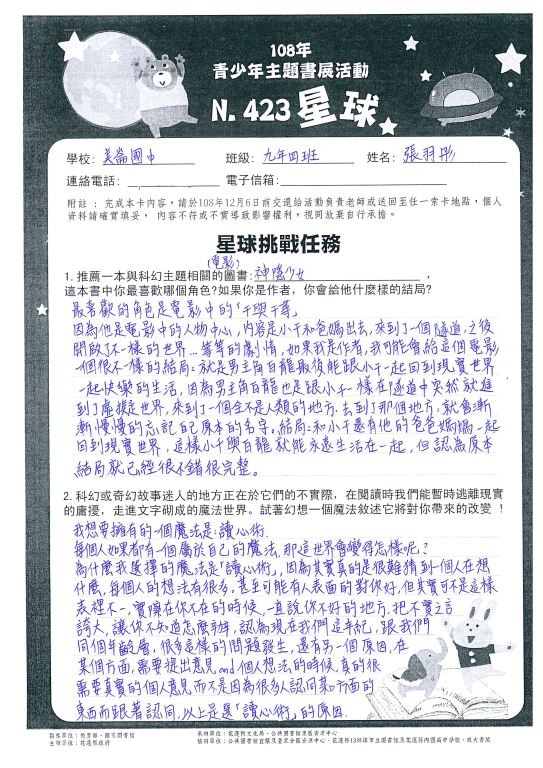 108年
青少年主題書展活動
N. 423 星球
學校: 美崙國中 班級: 九年四班 姓名: 張羽彤
連絡電話: 電子信箱:
附註 : 完成本卡內容,請於108年12月6日前交還給活動負責老師或送回至任一索卡地點,個人
資料請確實填妥, 內容不符或不實導致影響權利,視同放棄自行承擔。
星球挑戰任務
(電影)
1. 推薦一本與科幻主題相關的圖書: 神隱少女 ,
這本書中你最喜歡哪個角色?如果你是作者,你會給他什麼樣的結局?
最喜歡的角色是電影中的「千與千尋」
因為他是電影中的人物中心,內容是小千和爸媽出去,來到了一個隧道,之後
開啟了不一樣的世界...等等的劇情,如果我是作者,我可能會給這個電影
一個很不一樣的結局:就是男主角白龍最後能跟小千一起回到現實世界
一起快樂的生活,因為男主角白龍也是跟小千一樣在隧道中突然就進
到了虛擬世界,來到了一個全不是人類的地方,去到了那個地方,就會漸
漸慢慢的忘記自己原本的名字。結局:和小千還有他的爸爸媽媽一起
回到現實世界,這樣小千與白龍就能永遠生活在一起,但認為原本
結局就已經很不錯很完整。
2. 科幻或奇幻故事迷人的地方正在於它們的不實際,在閱讀時我們能暫時逃離現實
的庸擾,走進文字砌成的魔法世界。試著幻想一個魔法敘述它將對你帶來的改變 !
我想要擁有的一個魔法是:讀心術.
每個人如果都有一個屬於自己的魔法,那這世界會變得怎樣呢?
為什麼我選擇的魔法是「讀心術」,因為其實真的是很難猜到一個人在想
什麼,每個人的想法有很多,甚至可能有人表面的對你好,但其實可不是這樣
表裡不一,實際在你不在的時候,一直說你不好的地方,把不實之言
誇大,讓你不知道怎麼辦,認為現在我們這年紀,跟我們
同個年齡層,很多這樣的問題發生,還有另一個原因,在
某個方面,需要提出意見and個人想法的時候,真的很
需要真實的個人意見而不是因為很多人認同某方面的
東西而跟著認同,以上是選「讀心術」的原因.
指導單位:教育部、國家圖書館
主辦單位:花蓮縣政府
承辦單位:花蓮縣文化局、公共圖書館東區資源中心